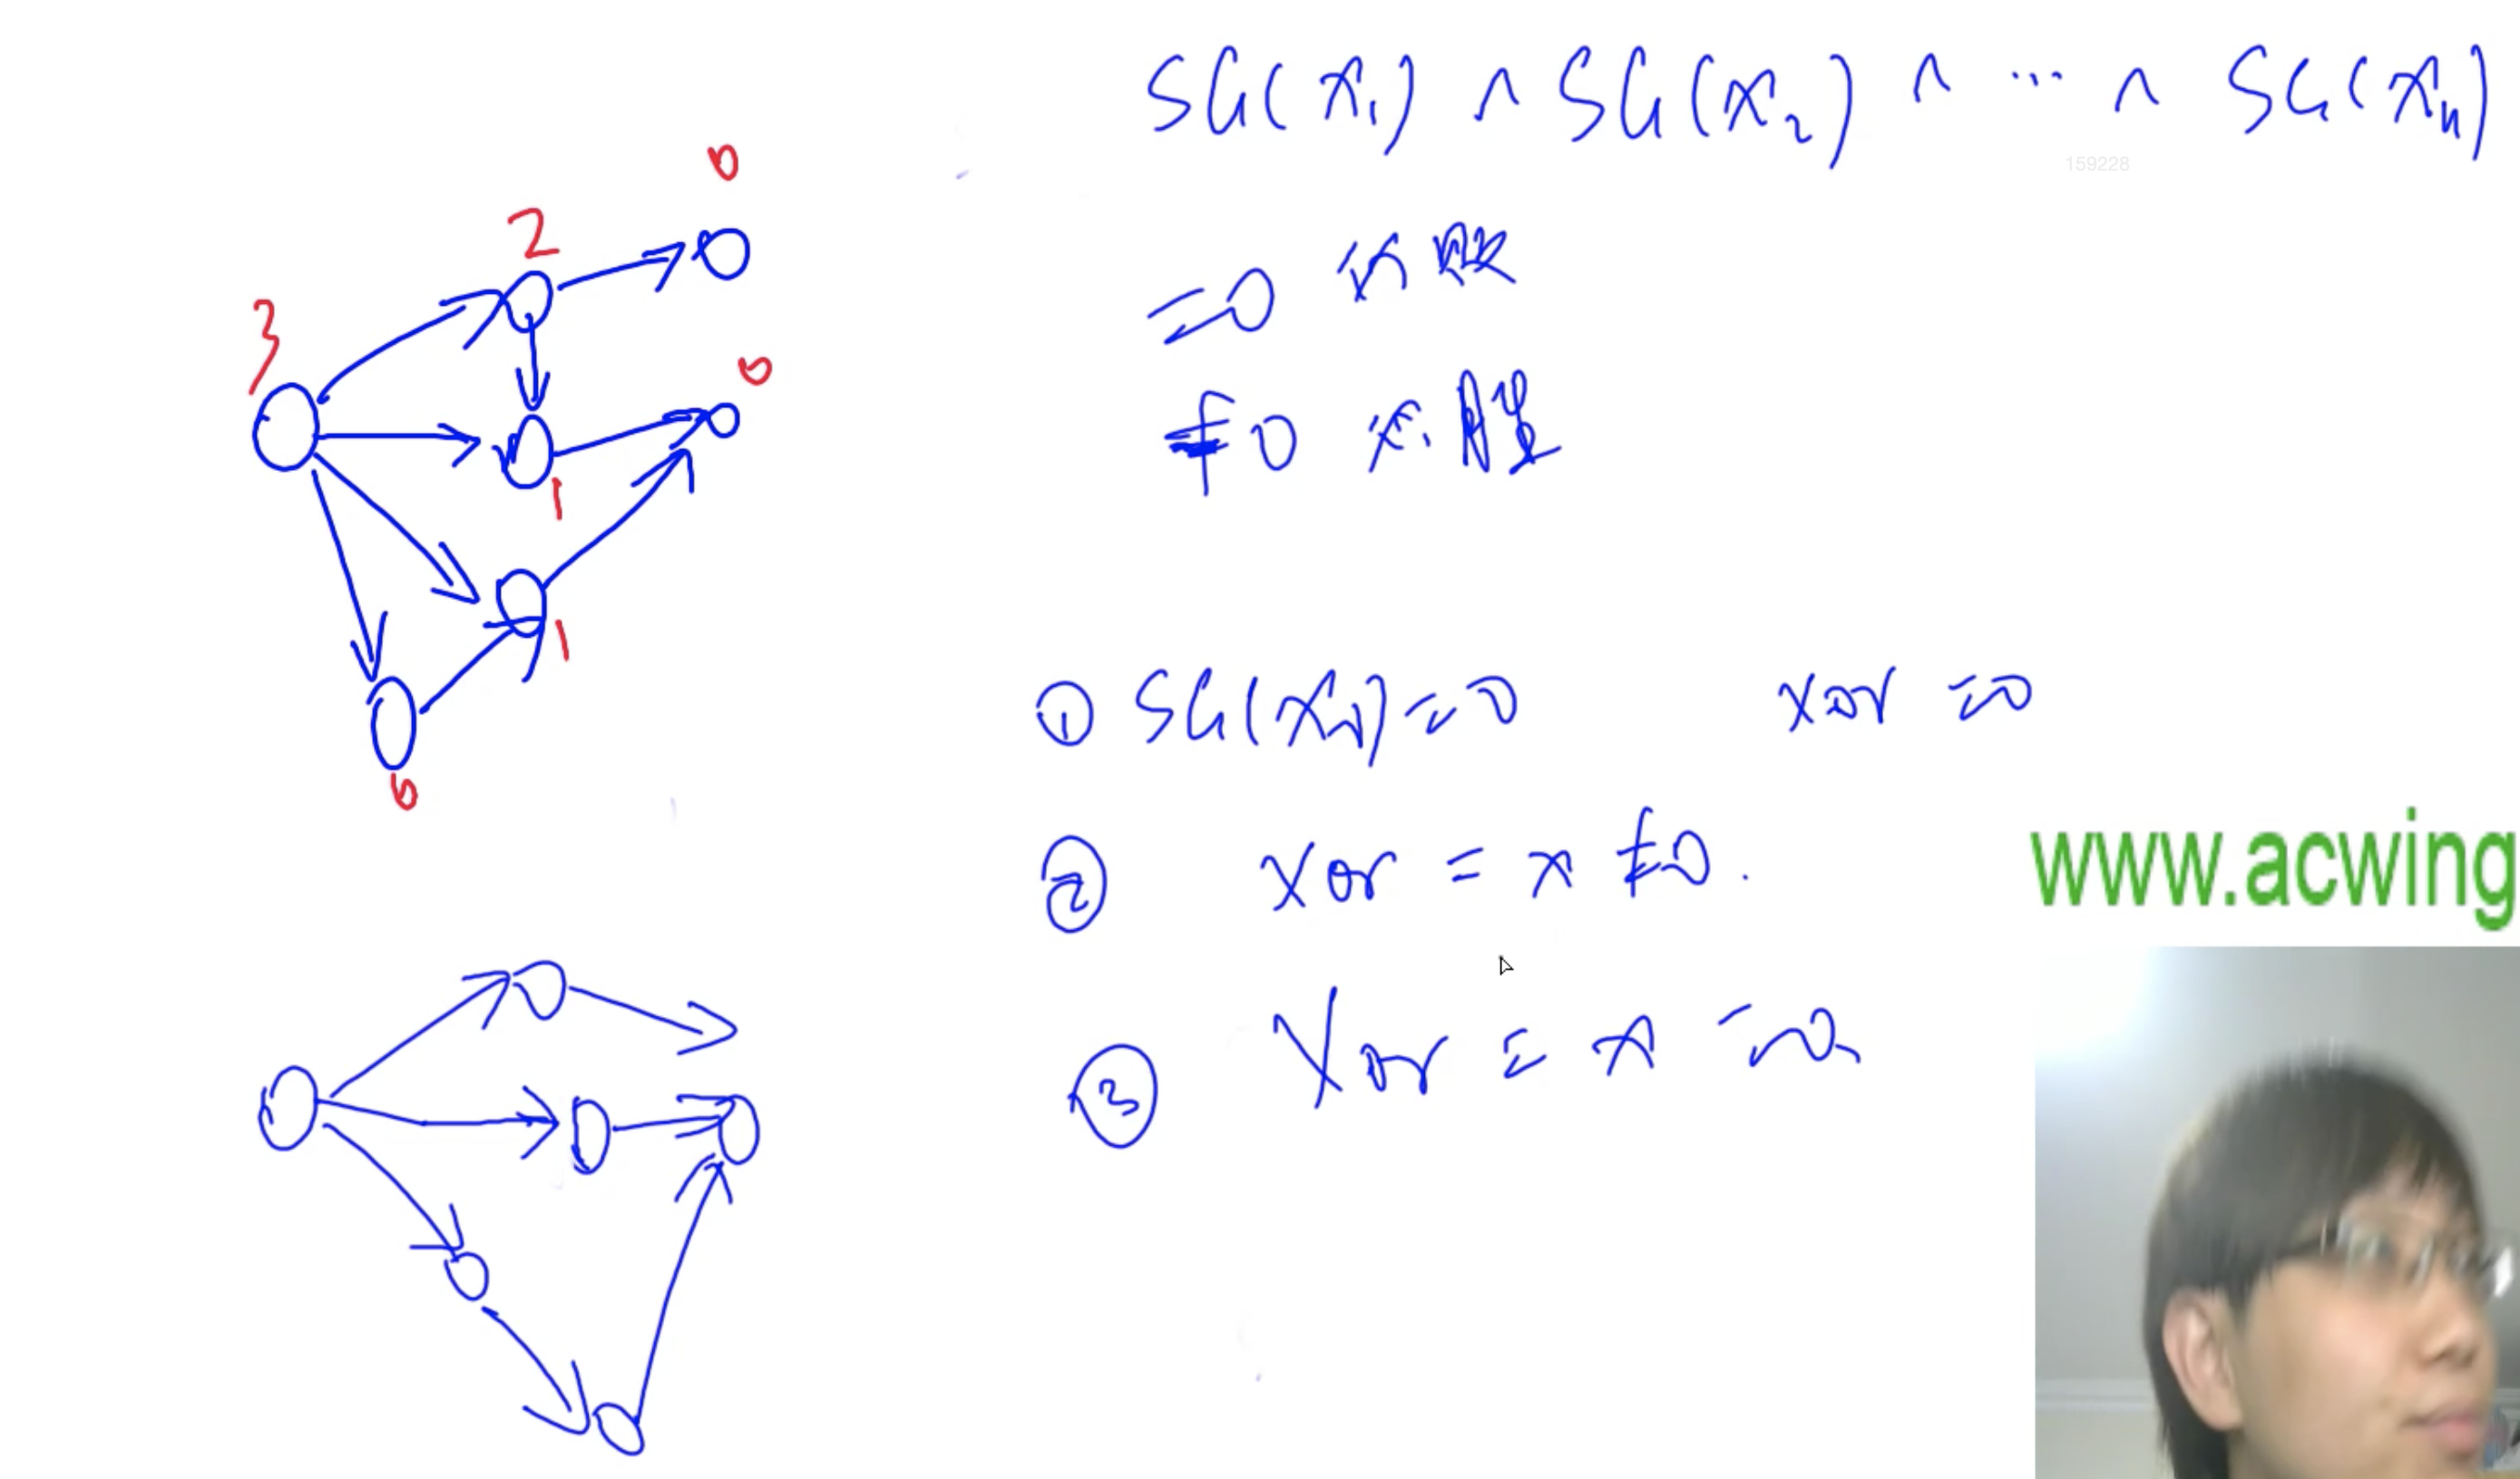 SG(x₁) ^ SG(x₂) ^ ... ^ SG(xₙ)
159228
=0 必败
≠0 必胜
0
2
3
0
1
1
0
① SG(xₙ)=0 xor =0
② xor = x ≠0.
③ xor = x =0
www.acwing